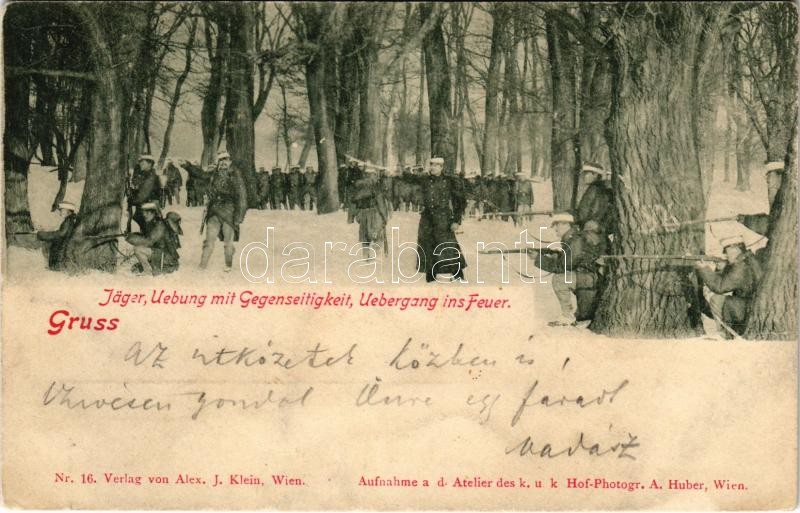 darabanth
Jäger, Uebung mit Gegenseitigkeit, Uebergang ins Feuer.
Gruss
Az ütközetek közben is,
szivesen gondol Önre egy fáradt
vadász
Nr. 16. Verlag von Alex. J. Klein, Wien.
Aufnahme a d. Atelier des k. u k Hof-Photogr. A. Huber, Wien.